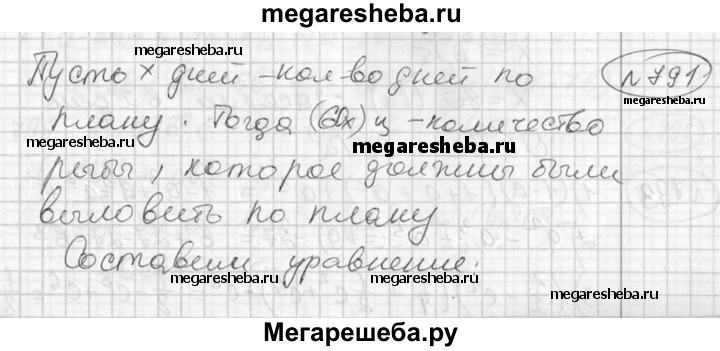 megaresheba.ru
megaresheba.ru
Пусть x дней - кол-во дней по
№ 791
megaresheba.ru
плану. Тогда (60x) ц - количество
megaresheba.ru
megaresheba.ru
рыбы, которое должны были
megaresheba.ru
выловить по плану
Составим уравнение:
megaresheba.ru
megaresheba.ru
Мегарешеба.ру